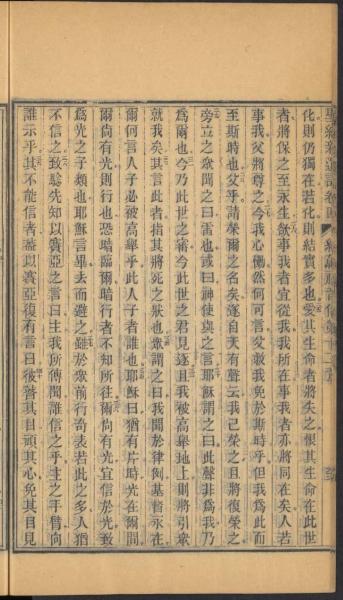 化則仍獨在若化則結實多也愛其生命者將失之恨其生命在此世
者將保之至永生飲事我者宜從我我所在事我者亦將同在矣人若
事我父將尊之今我心憊然何可言父歟我免於斯時乎但我爲此而
至斯時也父乎請榮爾之名矣遂自天有聲云我已榮之且將復榮之
旁立之衆聞之曰雷也或曰神使與之言耶穌謂之曰此聲非爲我乃
爲爾也今乃此世之審今此世之君見逐且我被高舉地上則將引衆
就我矣其言此者指其將死之狀也衆謂之曰我聞於律例基督永在
爾何言人子必被高舉乎此人子者誰也耶穌曰猶有片時光在爾間
爾尙有光則行也恐暗臨爾暗行者不知所往爾尙有光宜信於光致
爲光之子類也耶穌言畢去而避之雖於衆前行奇表若此之多人猶
不信之致騐先知以賽亞之言曰主我所傳聞誰信之乎主之手臂向
誰示乎其不能信者蓋以賽亞復有言曰彼瞽其目頑其心免其目見